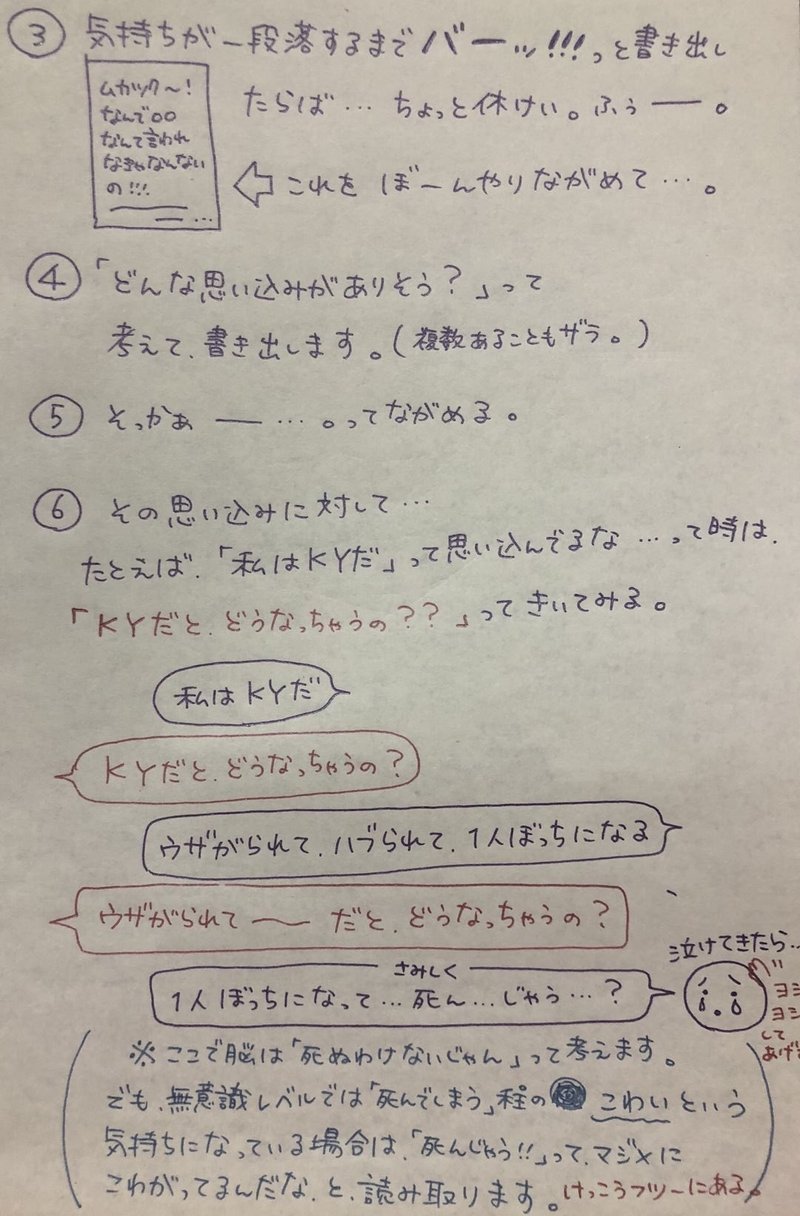 ③ 気持ちが一段落するまでバーッ!!!っと書き出し
たらば…ちょっと休けい。ふぅ──。
ムカツク〜!
なんで○○
なんて言われ
なきゃなんない
の!!!
⇦ これを ぼーんやりながめて…。
④「どんな思い込みがありそう?」って
考えて、書き出します。(複数あることもザラ。)
⑤ そっかぁ ──…。ってながめる。
⑥ その思い込みに対して…
たとえば、「私はKYだ」って思い込んでるな…って時は、
「KYだと、どうなっちゃうの??」ってきいてみる。
私はKYだ
KYだと、どうなっちゃうの?
ウザがられて、ハブられて、1人ぼっちになる
ウザがられて〜だと、どうなっちゃうの?
さみしく
1人ぼっちになって…死ん…じゃう…?
泣けてきたら…
ヨシ
ヨシ
して
あげ
※ここで脳は「死ぬわけないじゃん」って考えます。
でも、無意識レベルでは「死んでしまう」程の こわいという
気持ちになっている場合は、「死んじゃう!!」って、マジメに
こわがってるんだな、と、読み取ります。けっこうフツーにある。